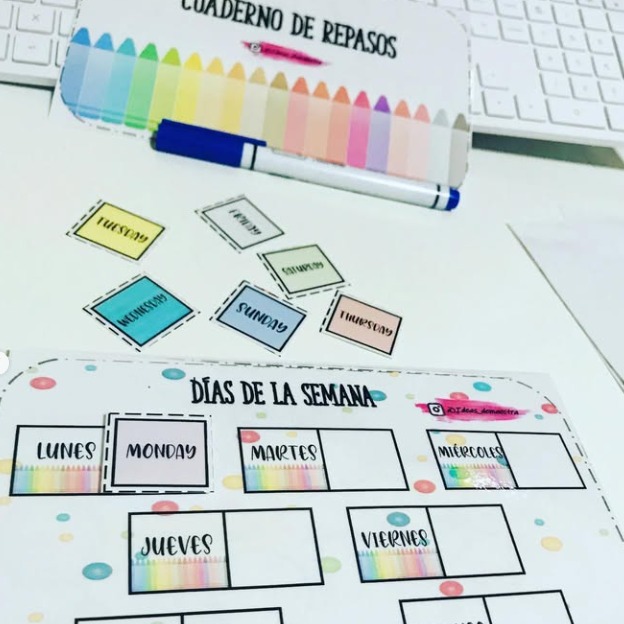 CUADERNO DE REPASOS
TUESDAY
FRIDAY
SATURDAY
WEDNESDAY
SUNDAY
THURSDAY
DÍAS DE LA SEMANA
@Ideas_demaestra
LUNES
MONDAY
MARTES
MIÉRCOLES
JUEVES
VIERNES